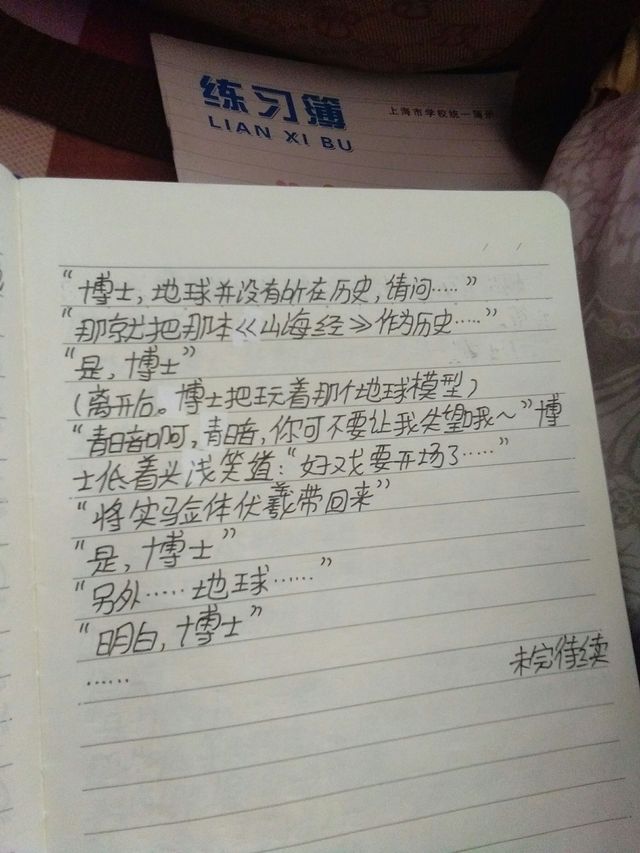 练习簿
LIAN XI BU
上海市学校统一簿册
“博士，地球并没有所在历史，请问……”
“那就把那本《山海经》作为历史……”
“是，博士”
（离开后。博士把玩着那个地球模型）
“青暗啊，青暗，你可不要让我失望哦～”博
士低着头浅笑道：“好戏要开场了……”
“将实验体伏羲带回来”
“是，博士”
“另外……地球……”
“明白，博士”
……
未完待续